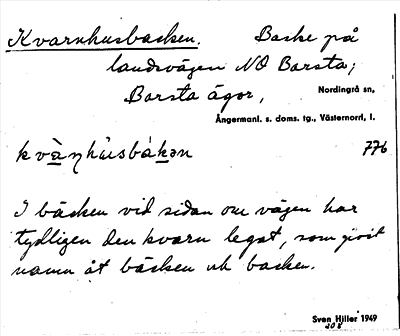 Kvarnhusbacken. Backe på
landsvägen NO Barsta;
Barsta ägor, Nordingrå sn,
Ångermanl. s. doms. tg., Västernorrl, l.
kvàṇhùsbákən 776
I bäcken vid sidan om vägen har
tydligen den kvarn legat, som givit
namn åt bäcken och backen.
Sven Hiller 1949
208